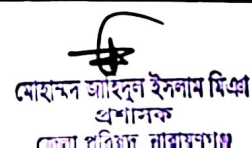 মোহাম্মদ জাহিদুল ইসলাম মিঞা
প্রশাসক
জেলা পরিষদ, নারায়ণগঞ্জ